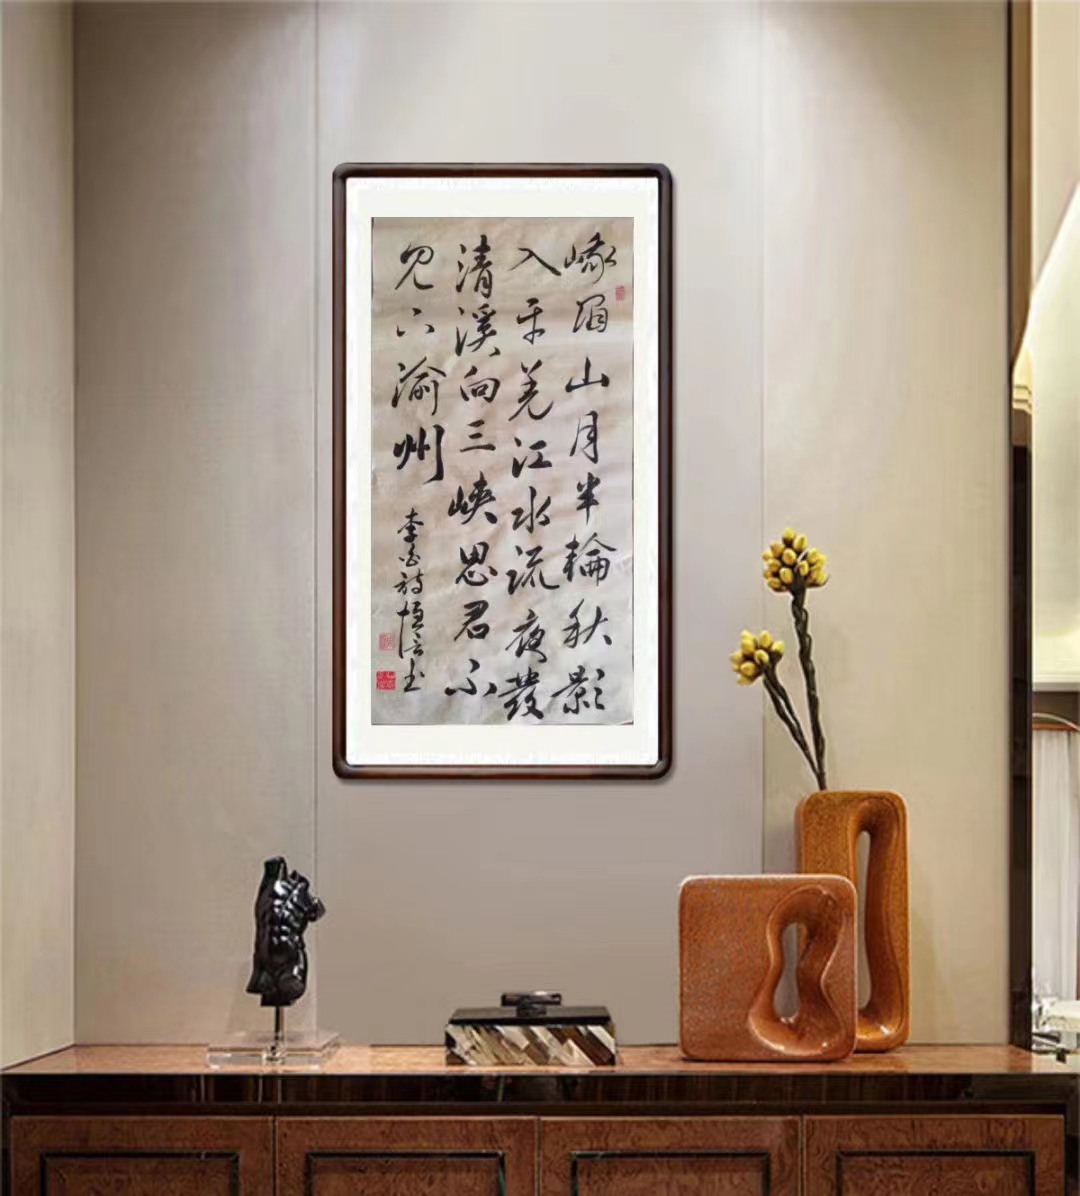 峨眉山月半輪秋影
入平羌江水流夜發
清溪向三峽思君不
見下渝州
李白詩恒信书